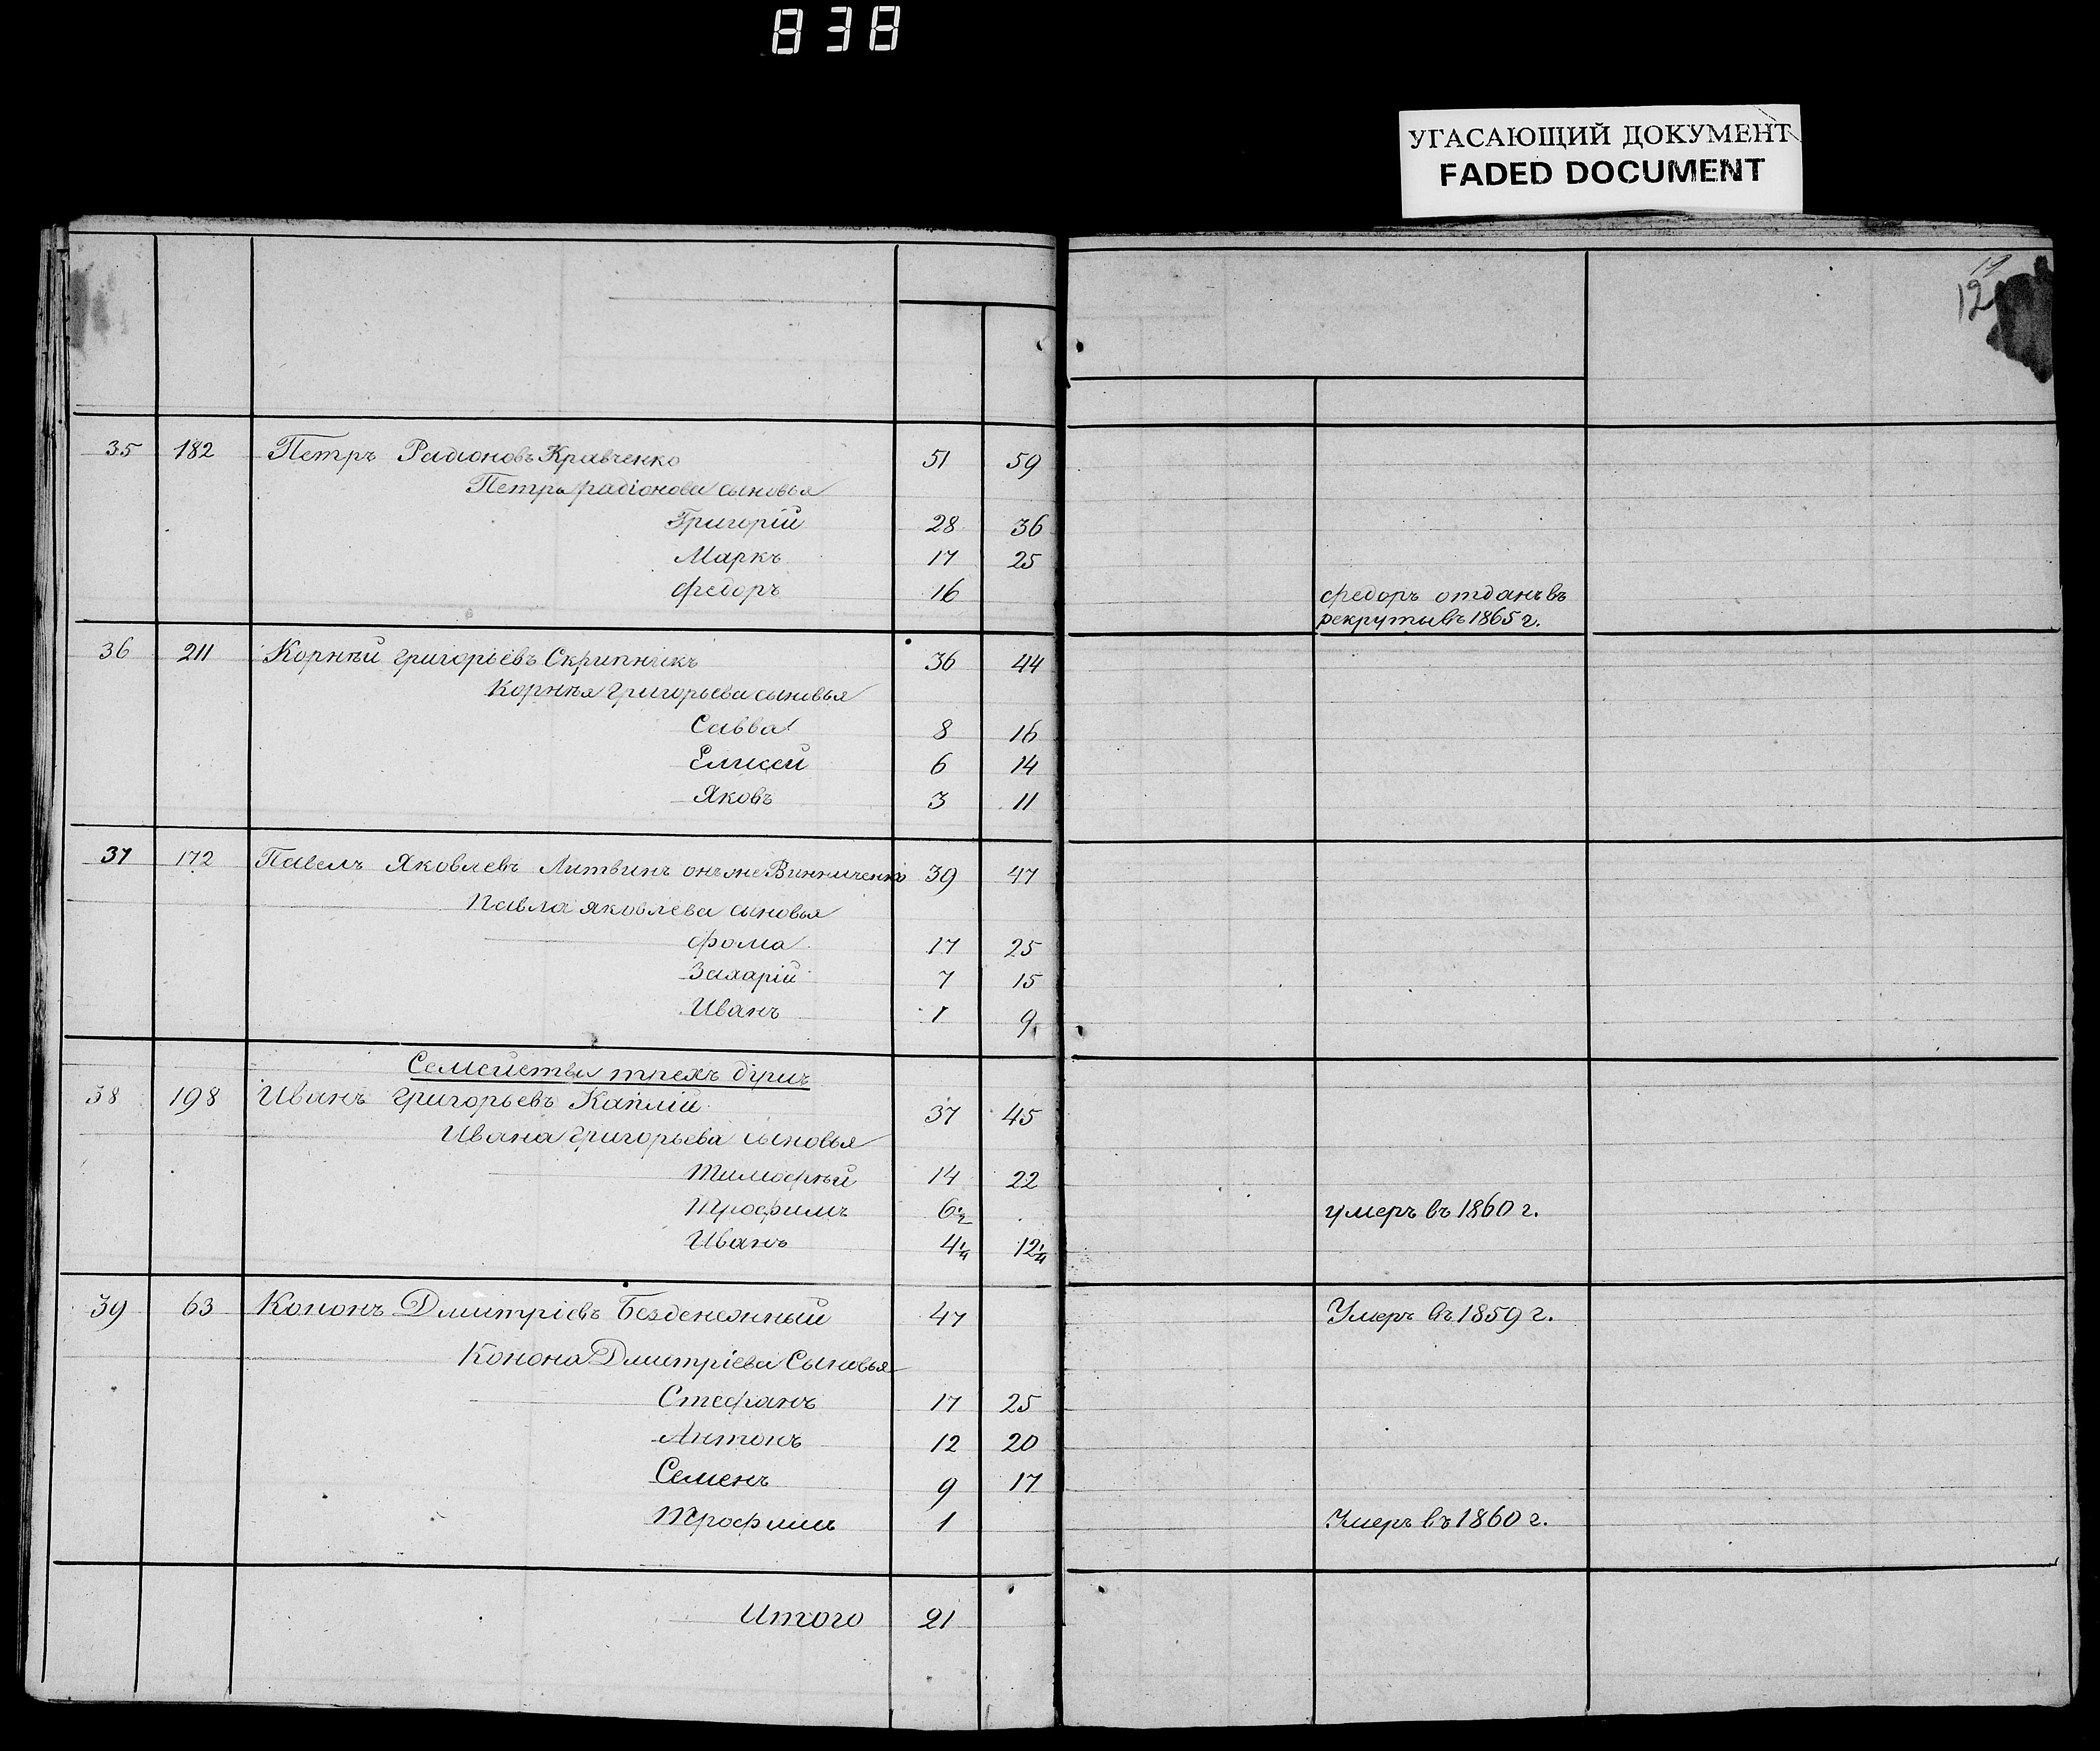 838
УГАСАЮЩИЙ ДОКУМЕНТ
FADED DOCUMENT
12
35 182 Петръ Радіоновъ Кравченко 51 59
Петра радіонова сыновья
Григорій 28 36
Маркъ 17 25
Федоръ 16 Федоръ отданъ въ
рекруты въ 1865 г.
36 211 Корнѣй григорьевъ Скрипникъ 36 44
Корнѣя григорьева сыновья
Савва 8 16
Елисей 6 14
Яковъ 3 11
37 172 Павелъ Яковлевъ Литвинъ онъ же Винниченко 39 47
Павла яковлева сыновья
Фома 17 25
Захарій 7 15
Иванъ 1 9
Семейства трехъ душъ
38 198 Иванъ григорьевъ Каплій 37 45
Ивана григорьева сыновья
Тимофѣй 14 22
Трофимъ 6½ умеръ въ 1860 г.
Иванъ 4¼ 12¼
39 63 Кононъ Дмитріевъ Безденежный 47 Умеръ въ 1859 г.
Конона Дмитріева Сыновья
Стефанъ 17 25
Антонъ 12 20
Семенъ 9 17
Трофимъ 1 Умеръ въ 1860 г.
Итого 21